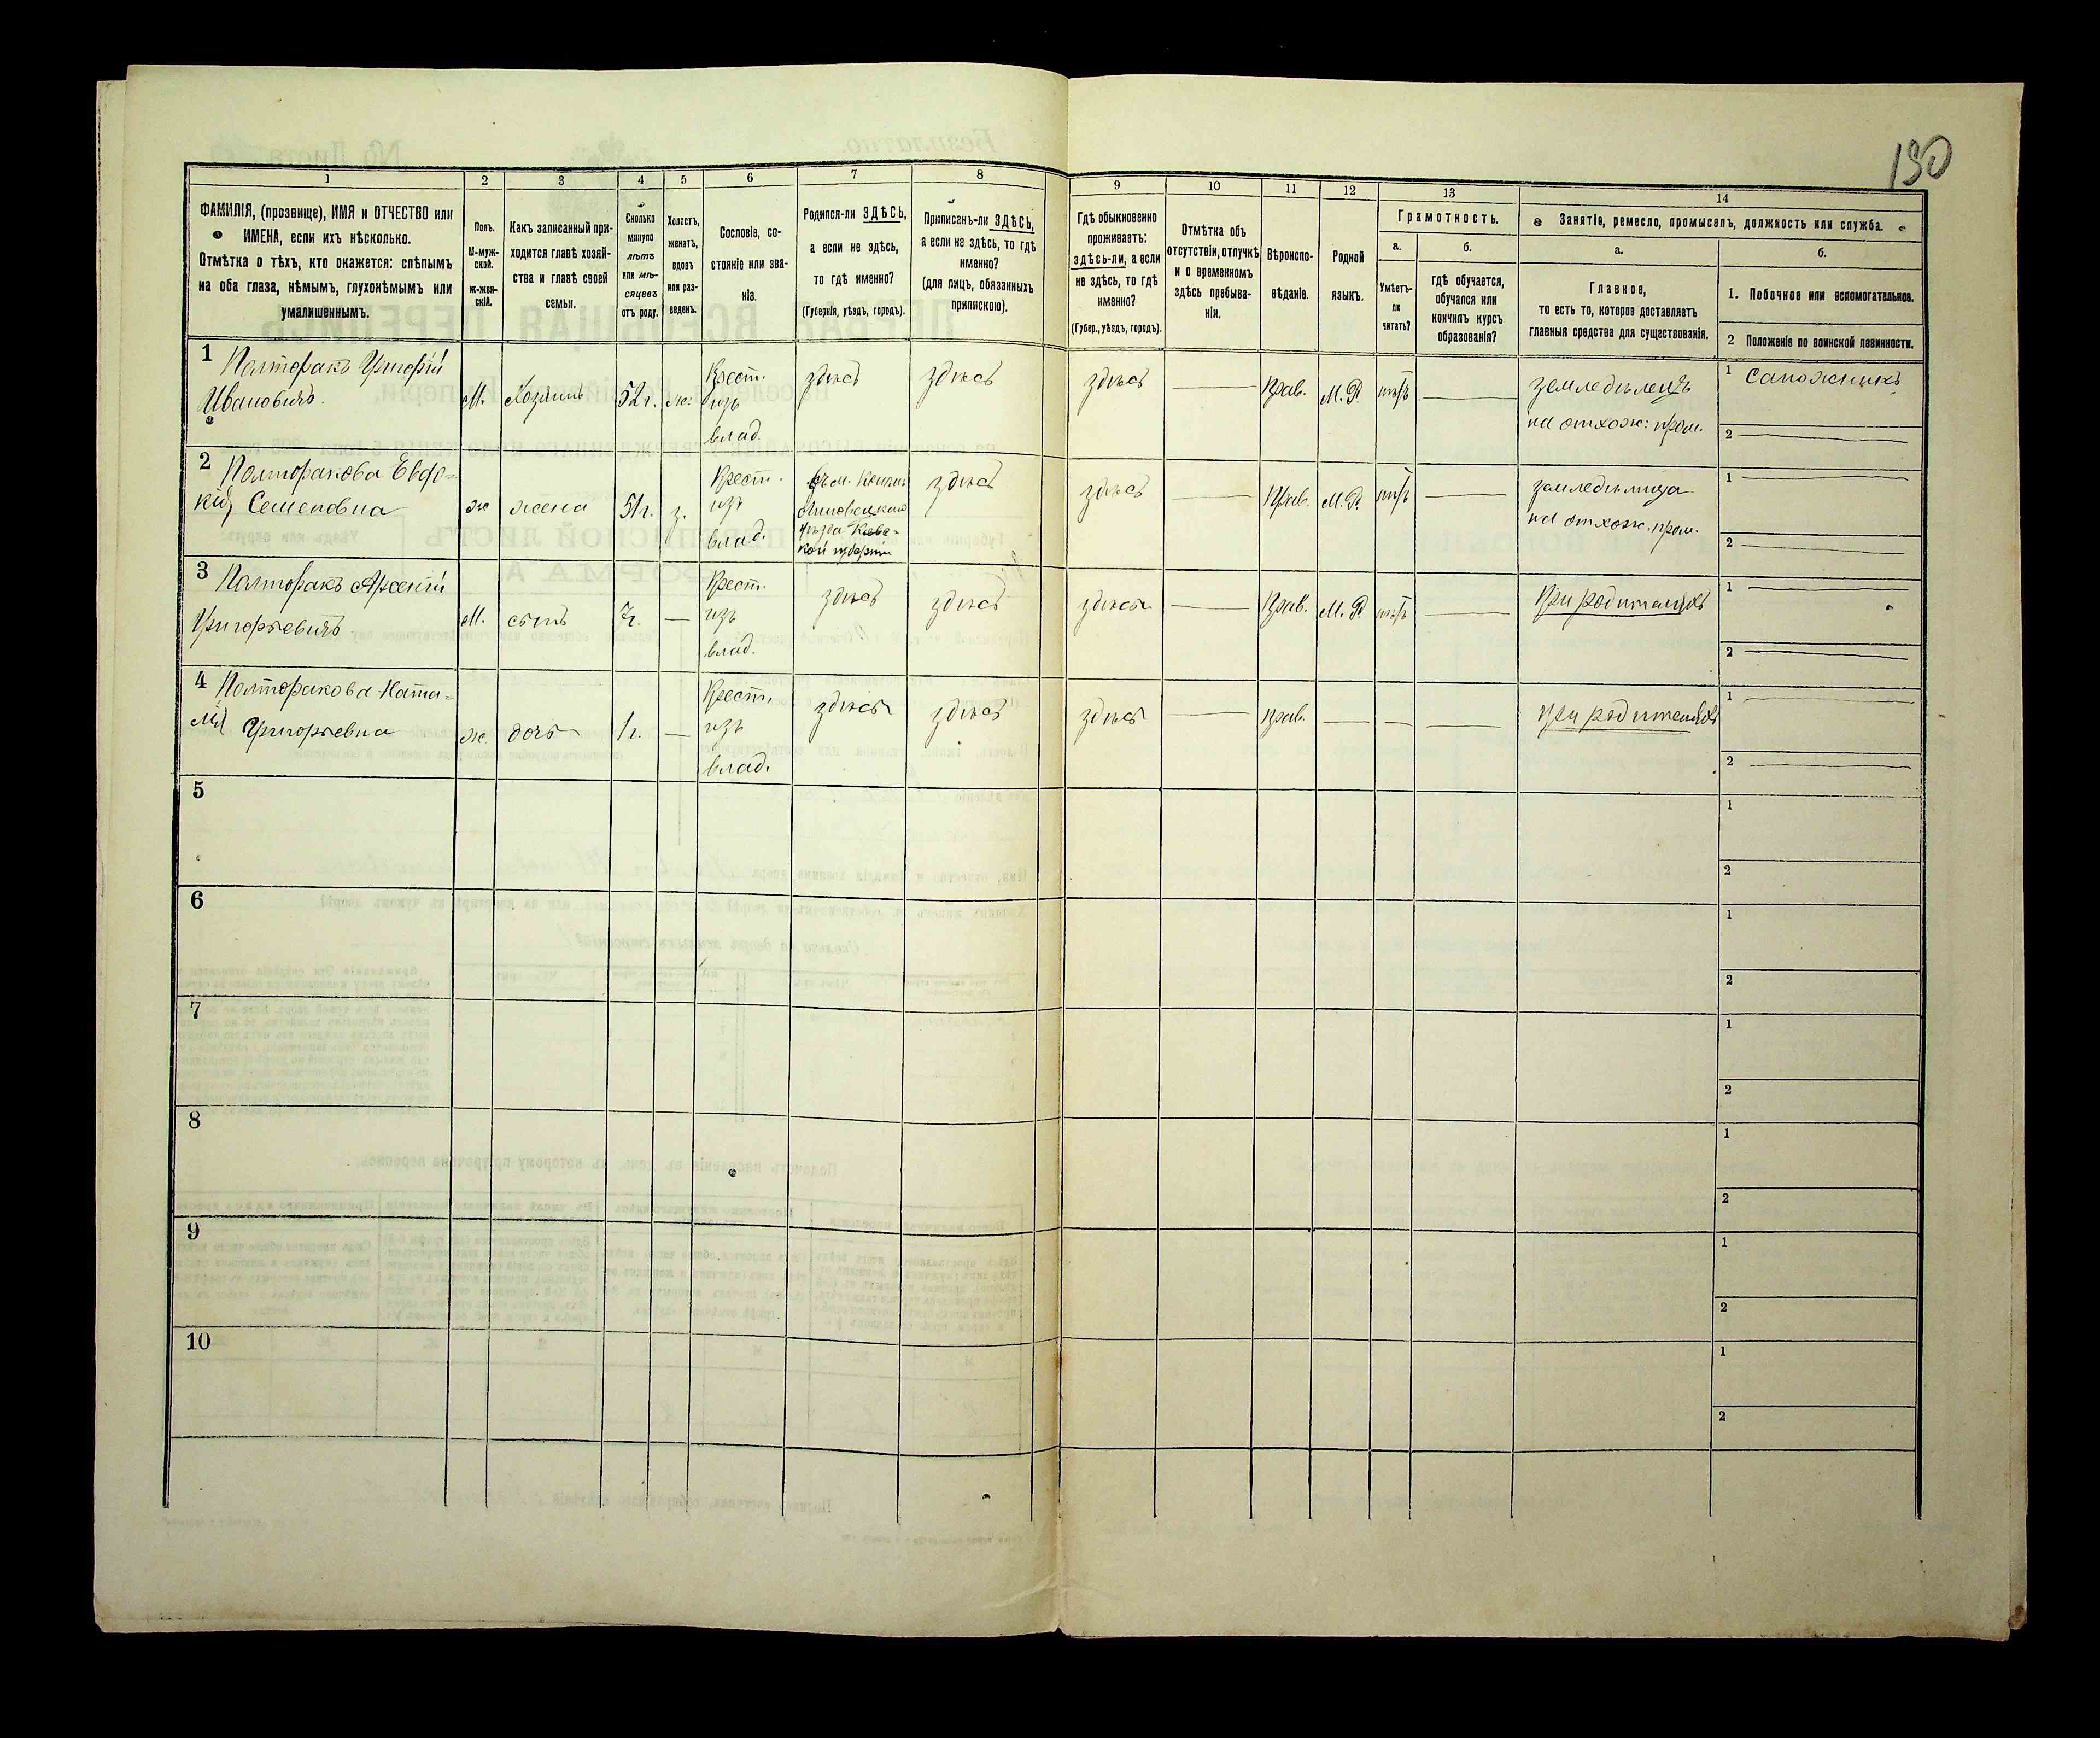 130
1 2 3 4 5 6 7 8 9 10 11 12 13 14
ФАМИЛІЯ, (прозвище), ИМЯ и ОТЧЕСТВО или
ИМЕНА, если ихъ нѣсколько.
Отмѣтка о тѣхъ, кто окажется: слѣпымъ
на оба глаза, нѣмымъ, глухонѣмымъ или
умалишеннымъ.
Полъ.
М-муж-
ской.
ж-жен-
скій.
Какъ записанный при-
ходится главѣ хозяй-
ства и главѣ своей
семьи.
Сколько
минуло
лѣтъ
или мѣ-
сяцевъ
отъ роду.
Холостъ,
женатъ,
вдовъ
или раз-
веденъ.
Сословіе, со-
стояніе или зва-
ніе.
Родился-ли ЗДѢСЬ,
а если не здѣсь,
то гдѣ именно?
(Губернія, уѣздъ, городъ).
Приписанъ-ли ЗДѢСЬ,
а если не здѣсь, то гдѣ
именно?
(для лицъ, обязанныхъ
припискою).
Гдѣ обыкновенно
проживаетъ:
здѣсь-ли, а если
не здѣсь, то гдѣ
именно?
(Губер., уѣздъ, городъ).
Отмѣтка объ
отсутствіи, отлучкѣ
и о временномъ
здѣсь пребыва-
ніи.
Вѣроиспо-
вѣданіе.
Родной
языкъ.
Грамотность.
а.
Умѣетъ-
ли
читать?
б.
гдѣ обучается,
обучался или
кончилъ курсъ
образованія?
Занятіе, ремесло, промыселъ, должность или служба.
а.
Главное,
то есть то, которое доставляетъ
главныя средства для существованія.
б.
1. Побочное или вспомогательное.
2 Положеніе по воинской повинности.
1 Полторакъ Григорій
Ивановичъ.
М.
Хозяинъ
52 г.
ж.
Крест.
изъ
влад.
здѣсь
здѣсь
здѣсь
Прав.
М. Р.
нѣтъ
земледѣлецъ
на отхож: пром.
1 Сапожникъ
2
2 Полторакова Евдо-
кія Семеновна
ж
жена
51 г.
з.
Крест.
изъ
влад.
Липовецкаго
уѣзда Кіевс-
кой губерніи
здѣсь
здѣсь
Прав.
М. Р.
нѣтъ
земледѣлица
на отхож. пром.
1
2
3 Полторакъ Арсентій
Григорьевичъ
М.
сынъ
7 г.
Крест.
изъ
влад.
здѣсь
здѣсь
здѣсь
Прав.
М. Р.
нѣтъ
При родителяхъ
1
2
4 Полторакова Ната-
лія Григорьевна
ж.
дочь
1 г.
Крест.
изъ
влад.
здѣсь
здѣсь
здѣсь
Прав.
при родителяхъ
1
2
5
1
2
6
1
2
7
1
2
8
1
2
9
1
2
10
1
2